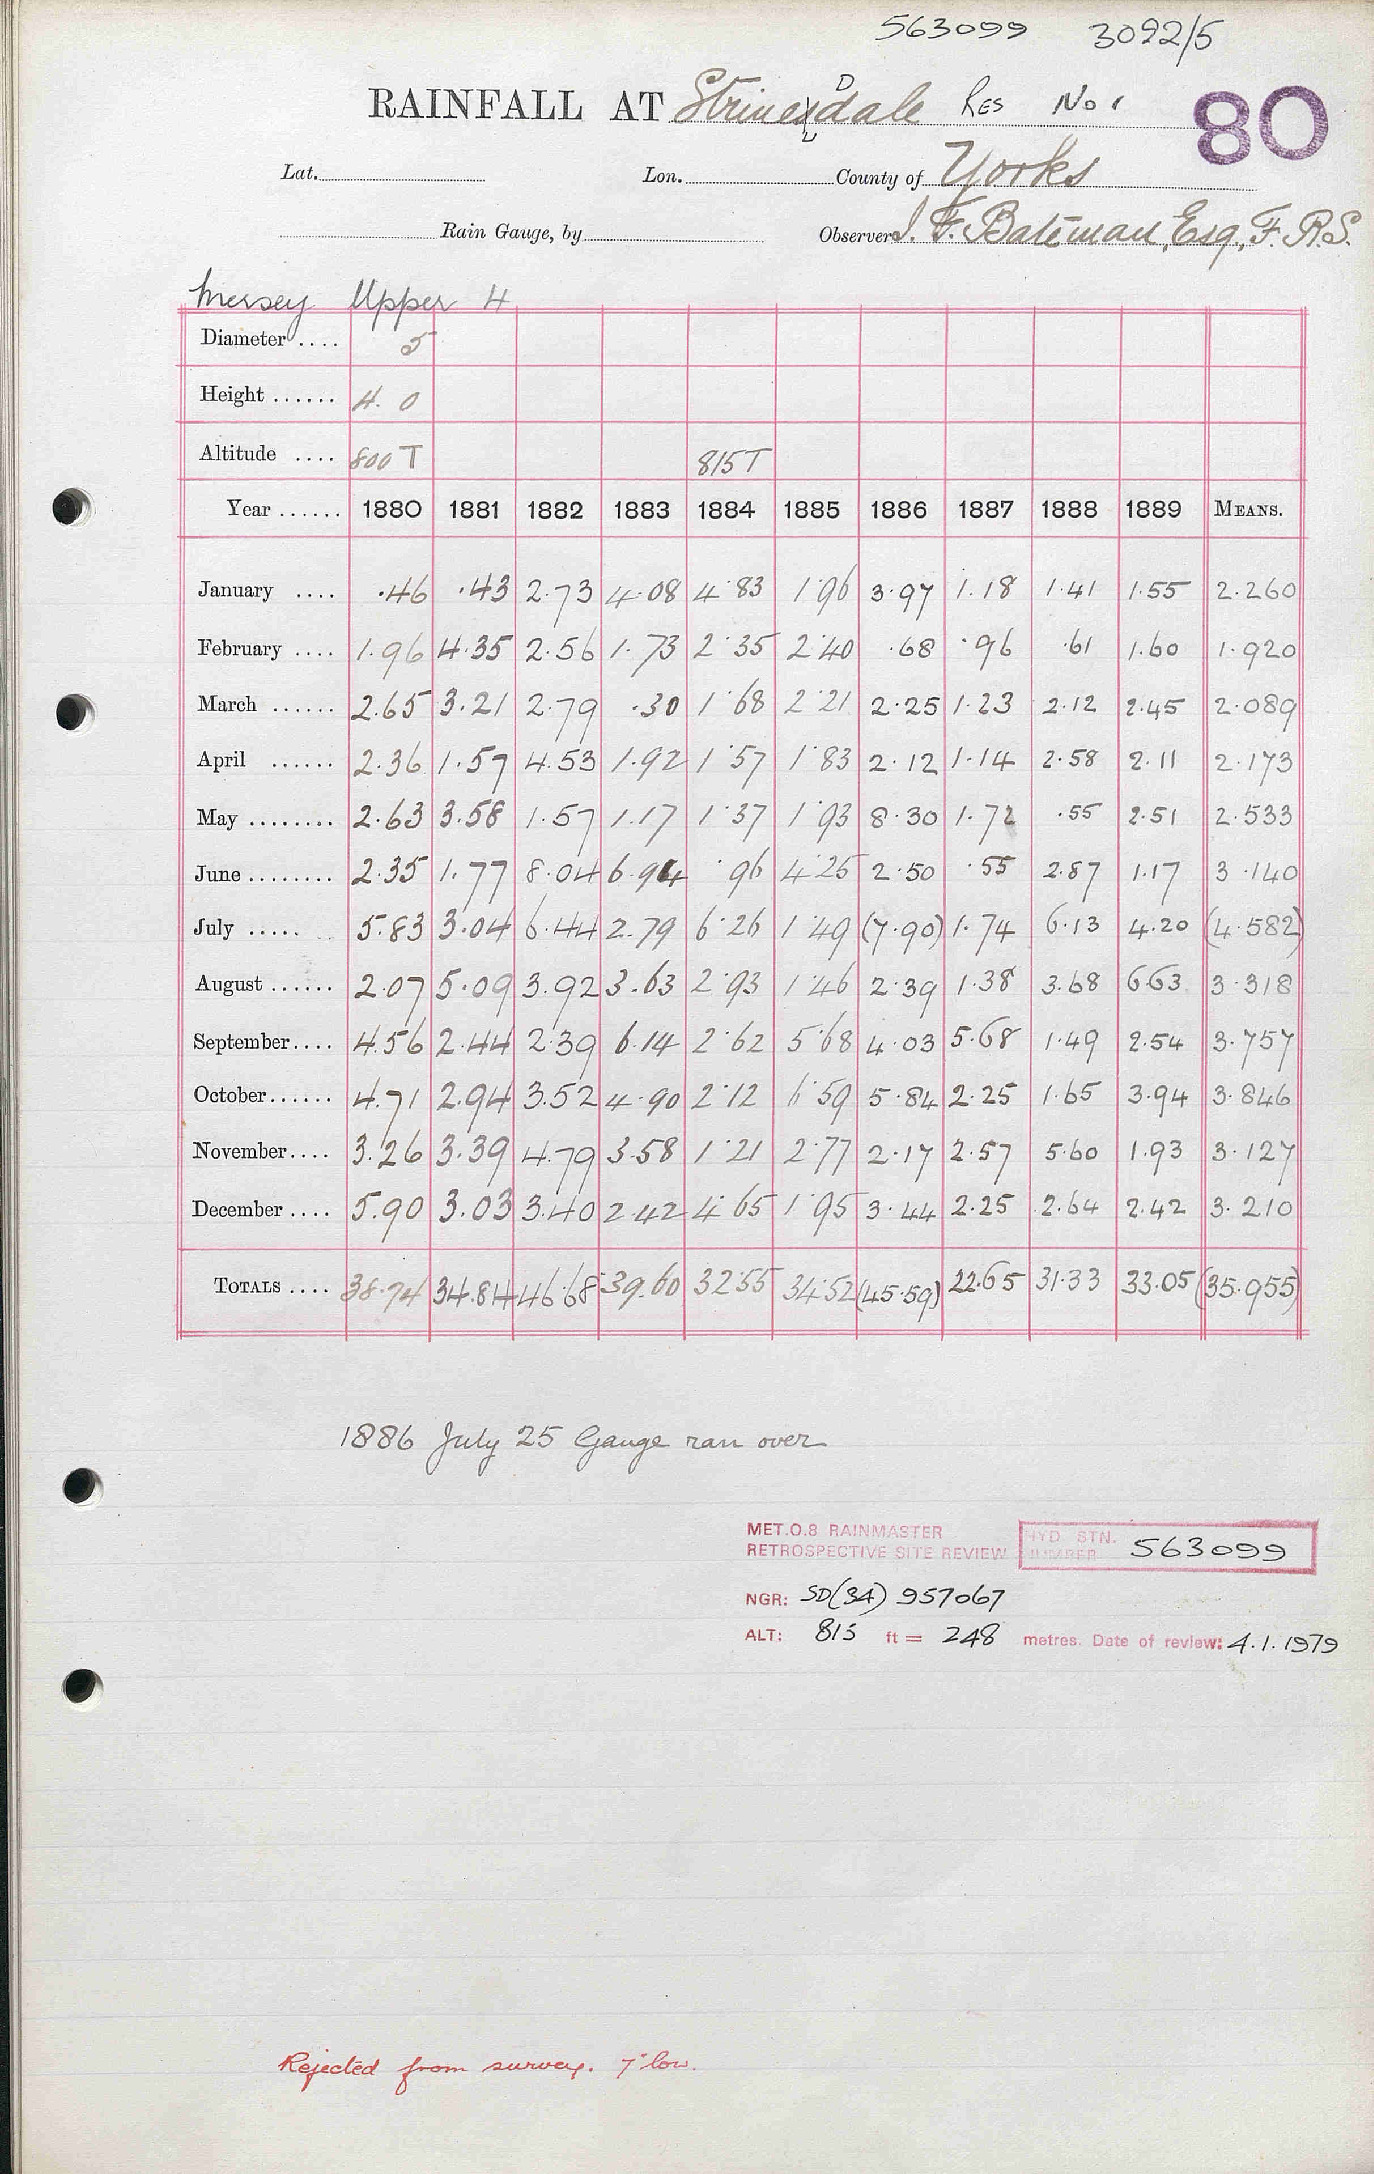 563099 3092/5
RAINFALL AT Strinesdale Res No 1 80
Lat. Lon. County of Yorks
Rain Gauge, by Observer J. F. Bateman, Esq., F.R.S.
Mersey Upper 4
Diameter .... 5
Height ...... 4. 0
Altitude .... 800T 815T
Year ...... 1880 1881 1882 1883 1884 1885 1886 1887 1888 1889 MEANS.
January .... .46 .43 2.73 4.08 4.83 1.96 3.97 1.18 1.41 1.55 2.260
February .... 1.96 4.35 2.56 1.73 2.35 2.40 .68 .96 .61 1.60 1.920
March ...... 2.65 3.21 2.79 .30 1.68 2.21 2.25 1.23 2.12 2.45 2.089
April ...... 2.36 1.57 4.53 1.92 1.57 1.83 2.12 1.14 2.58 2.11 2.173
May ........ 2.63 3.58 1.57 1.17 1.37 1.93 8.30 1.72 .55 2.51 2.533
June ........ 2.35 1.77 8.04 6.94 .96 4.25 2.50 .55 2.87 1.17 3.140
July ..... 5.83 3.04 6.44 2.79 6.26 1.49 (7.90) 1.74 6.13 4.20 (4.582)
August ...... 2.07 5.09 3.92 3.63 2.93 1.46 2.39 1.38 3.68 6.63 3.318
September.... 4.56 2.44 2.39 6.14 2.62 5.68 4.03 5.68 1.49 2.54 3.757
October...... 4.71 2.94 3.52 4.90 2.12 6.59 5.84 2.25 1.65 3.94 3.846
November.... 3.26 3.39 4.79 3.58 1.21 2.77 2.17 2.57 5.60 1.93 3.127
December .... 5.90 3.03 3.40 2.42 4.65 1.95 3.44 2.25 2.64 2.42 3.210
TOTALS .... 38.74 34.84 46.68 39.60 32.55 34.52 (45.59) 22.65 31.33 33.05 (35.955)
1886 July 25 Gauge ran over
MET.O.8 RAINMASTER
RETROSPECTIVE SITE REVIEW HYD STN. NUMBER 563099
NGR: SD(34) 957067
ALT: 815 ft = 248 metres. Date of review: 4.1.1979
Rejected from survey. 7" low.